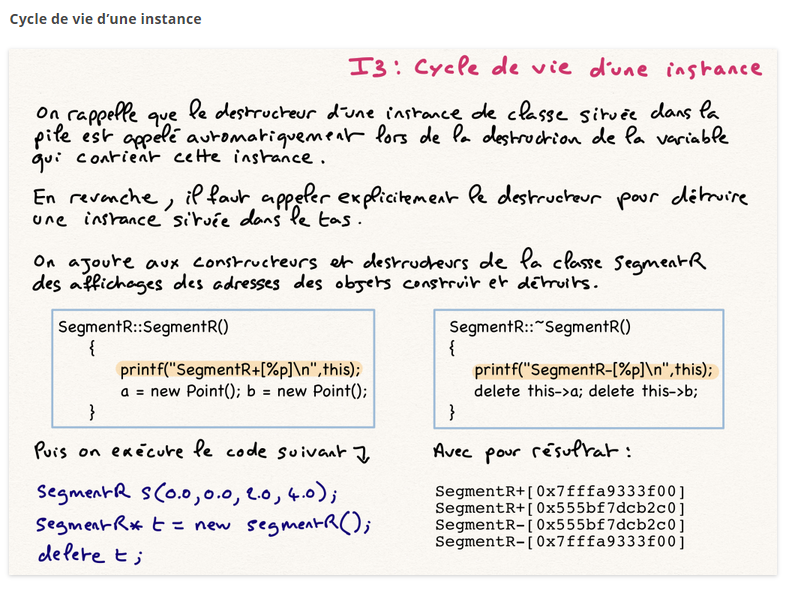 Cycle de vie d'une instance
I3 : Cycle de vie d'une instance
On rappelle que le destructeur d'une instance de classe située dans la
pile est appelé automatiquement lors de la destruction de la variable
qui contient cette instance.
En revanche, il faut appeler explicitement le destructeur pour détruire
une instance située dans le tas.
On ajoute aux constructeurs et destructeurs de la classe SegmentR
des affichages des adresses des objets construit et détruits.
SegmentR::SegmentR()
{
printf("SegmentR+[%p]\n",this);
a = new Point(); b = new Point();
}
SegmentR::~SegmentR()
{
printf("SegmentR-[%p]\n",this);
delete this->a; delete this->b;
}
Puis on exécute le code suivant ↴
SegmentR S(0.0,0.0,2.0,4.0);
SegmentR* t = new segmentR();
delete t;
Avec pour résultat :
SegmentR+[0x7fffa9333f00]
SegmentR+[0x555bf7dcb2c0]
SegmentR-[0x555bf7dcb2c0]
SegmentR-[0x7fffa9333f00]